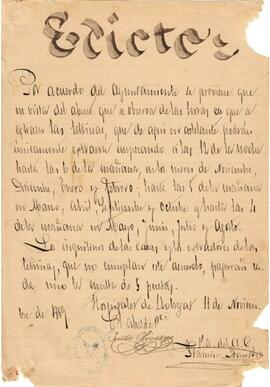 Edicto
Por acuerdo del Ayuntamiento se previene que
en vista del abuso que se observa de las horas en que se
estraen las letrinas, que de aquí en adelante podrán
únicamente estraerse empezando a las 12 de la noche
hasta las 6 de la mañana, en los meses de Noviembre,
Diciembre, Enero y Febrero; hasta las 5 de la mañana
en Marzo, Abril, Septiembre y Octubre y hasta las 4
de la mañana en Mayo, Junio, Julio y Agosto.
Los inquilinos de las casas y los extraedores de las
letrinas, que no cumplan este acuerdo, pagarán ca
da uno la multa de 5 pesetas.
Hospitalet de Llobregat 11 de Noviem
bre de 1889
El Alcalde
P. A. del A. C.
Ramón